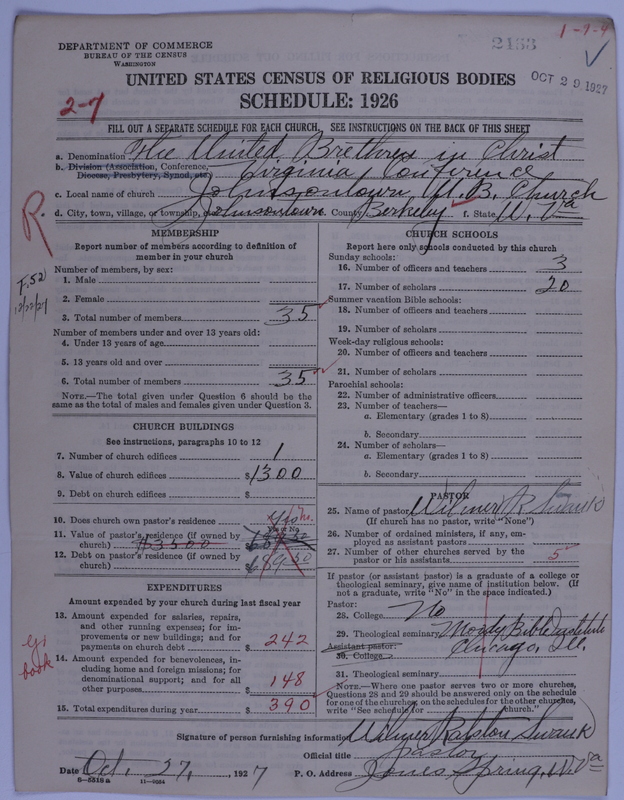 1-7-9
DEPARTMENT OF COMMERCE
BUREAU OF THE CENSUS
WASHINGTON
2153
UNITED STATES CENSUS OF RELIGIOUS BODIES
OCT 29 1927
2-7
SCHEDULE: 1926
FILL OUT A SEPARATE SCHEDULE FOR EACH CHURCH. SEE INSTRUCTIONS ON THE BACK OF THIS SHEET
a. Denomination The United Brethren in Christ
b. Division (Association, Conference, Virginia Conference
Diocese, Presbytery, Synod, etc.)
c. Local name of church Johnsontown U.B. Church
d. City, town, village, or township, Johnsontown e. County Berkeley f. State W. Va
R.
MEMBERSHIP
Report number of members according to definition of
member in your church
Number of members, by sex:
1. Male
F.52
12/22/27
2. Female
3. Total number of members 35
Number of members under and over 13 years old:
4. Under 13 years of age
5. 13 years old and over
6. Total number of members 35
NOTE.—The total given under Question 6 should be the
same as the total of males and females given under Question 3.
CHURCH BUILDINGS
See instructions, paragraphs 10 to 12
7. Number of church edifices 1
8. Value of church edifices $1300
9. Debt on church edifices $
10. Does church own pastor's residence Yes no.
Yes or No
11. Value of pastor's residence (if owned by
church) $3500
12. Debt on pastor's residence (if owned by
church) $689.50
EXPENDITURES
Amount expended by your church during last fiscal year
13. Amount expended for salaries, repairs,
and other running expenses; for im-
provements or new buildings; and for
payments on church debt $ 242
14. Amount expended for benevolences, in-
cluding home and foreign missions; for
denominational support; and for all
other purposes 148
15. Total expenditures during year $ 390
book
CHURCH SCHOOLS
Report here only schools conducted by this church
Sunday schools:
16. Number of officers and teachers 3
17. Number of scholars 20
Summer vacation Bible schools:
18. Number of officers and teachers
19. Number of scholars
Week-day religious schools:
20. Number of officers and teachers
21. Number of scholars
Parochial schools:
22. Number of administrative officers
23. Number of teachers—
a. Elementary (grades 1 to 8)
b. Secondary
24. Number of scholars—
a. Elementary (grades 1 to 8)
b. Secondary
PASTOR
25. Name of pastor Wilmer R Swank
(If church has no pastor, write "None")
26. Number of ordained ministers, if any, em-
ployed as assistant pastors
27. Number of other churches served by the
pastor or his assistants 5
If pastor (or assistant pastor) is a graduate of a college or
theological seminary, give name of institution below. (If
not a graduate, write "No" in the space indicated.)
Pastor:
28. College No
29. Theological seminary Moody Bible Institute
Assistant pastor: Chicago, Ill.
30. College
31. Theological seminary
NOTE.—Where one pastor serves two or more churches,
Questions 28 and 29 should be answered only on the schedule
for one of the churches, on the schedules for the other churches,
write "See schedule for church."
Signature of person furnishing information Wilmer Ralston Swank
Official title Pastor
Date Oct. 27, 1927 P. O. Address Jones Spring, W. Va
8-5518a 11-9084